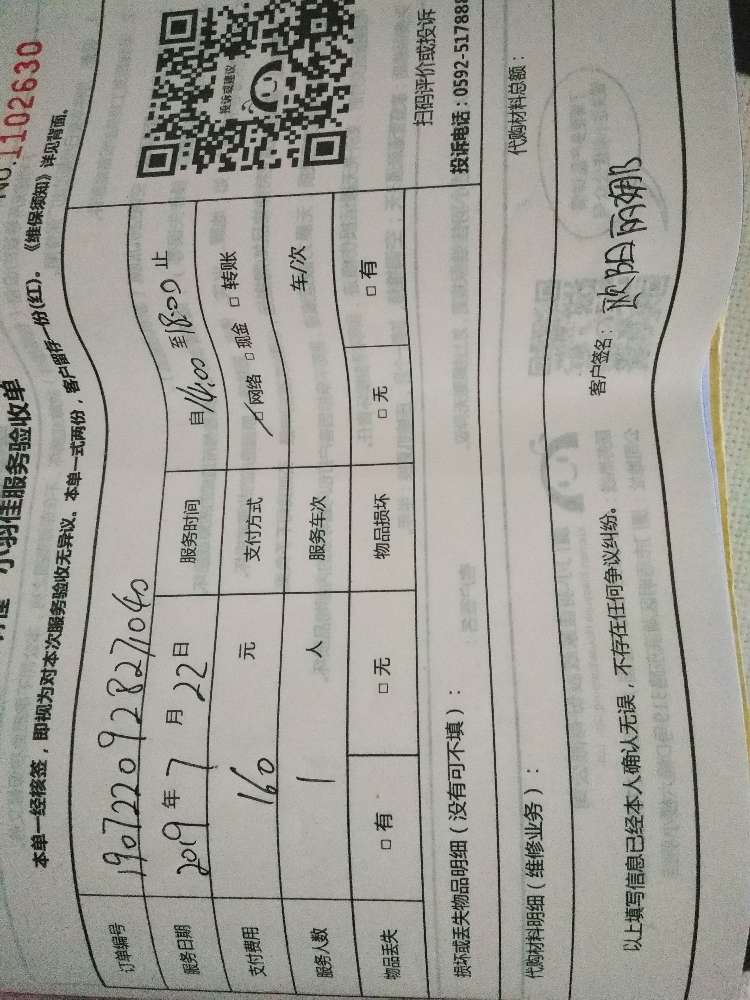 NO.1102630
小羽佳服务验收单
本单一经核签，即视为对本次服务验收无异议。本单一式两份，客户留存一份(红)。《维保须知》详见背面。
订单编号 190722092827040
服务日期 2019 年 7 月 22 日 服务时间 自 14:00 至 18:00 止
支付费用 160 元 支付方式 □ 网络 □ 现金 □ 转账
服务人数 1 人 服务车次 车/次
物品丢失 □ 有 □ 无 物品损坏 □ 无 □ 有
投诉或建议
扫码评价或投诉
投诉电话：0592-517888
损坏或丢失物品明细（没有可不填）：
代购材料明细（维修业务）： 代购材料总额：
以上填写信息已经本人确认无误，不存在任何争议纠纷。 客户签名： 欧阳丽娜